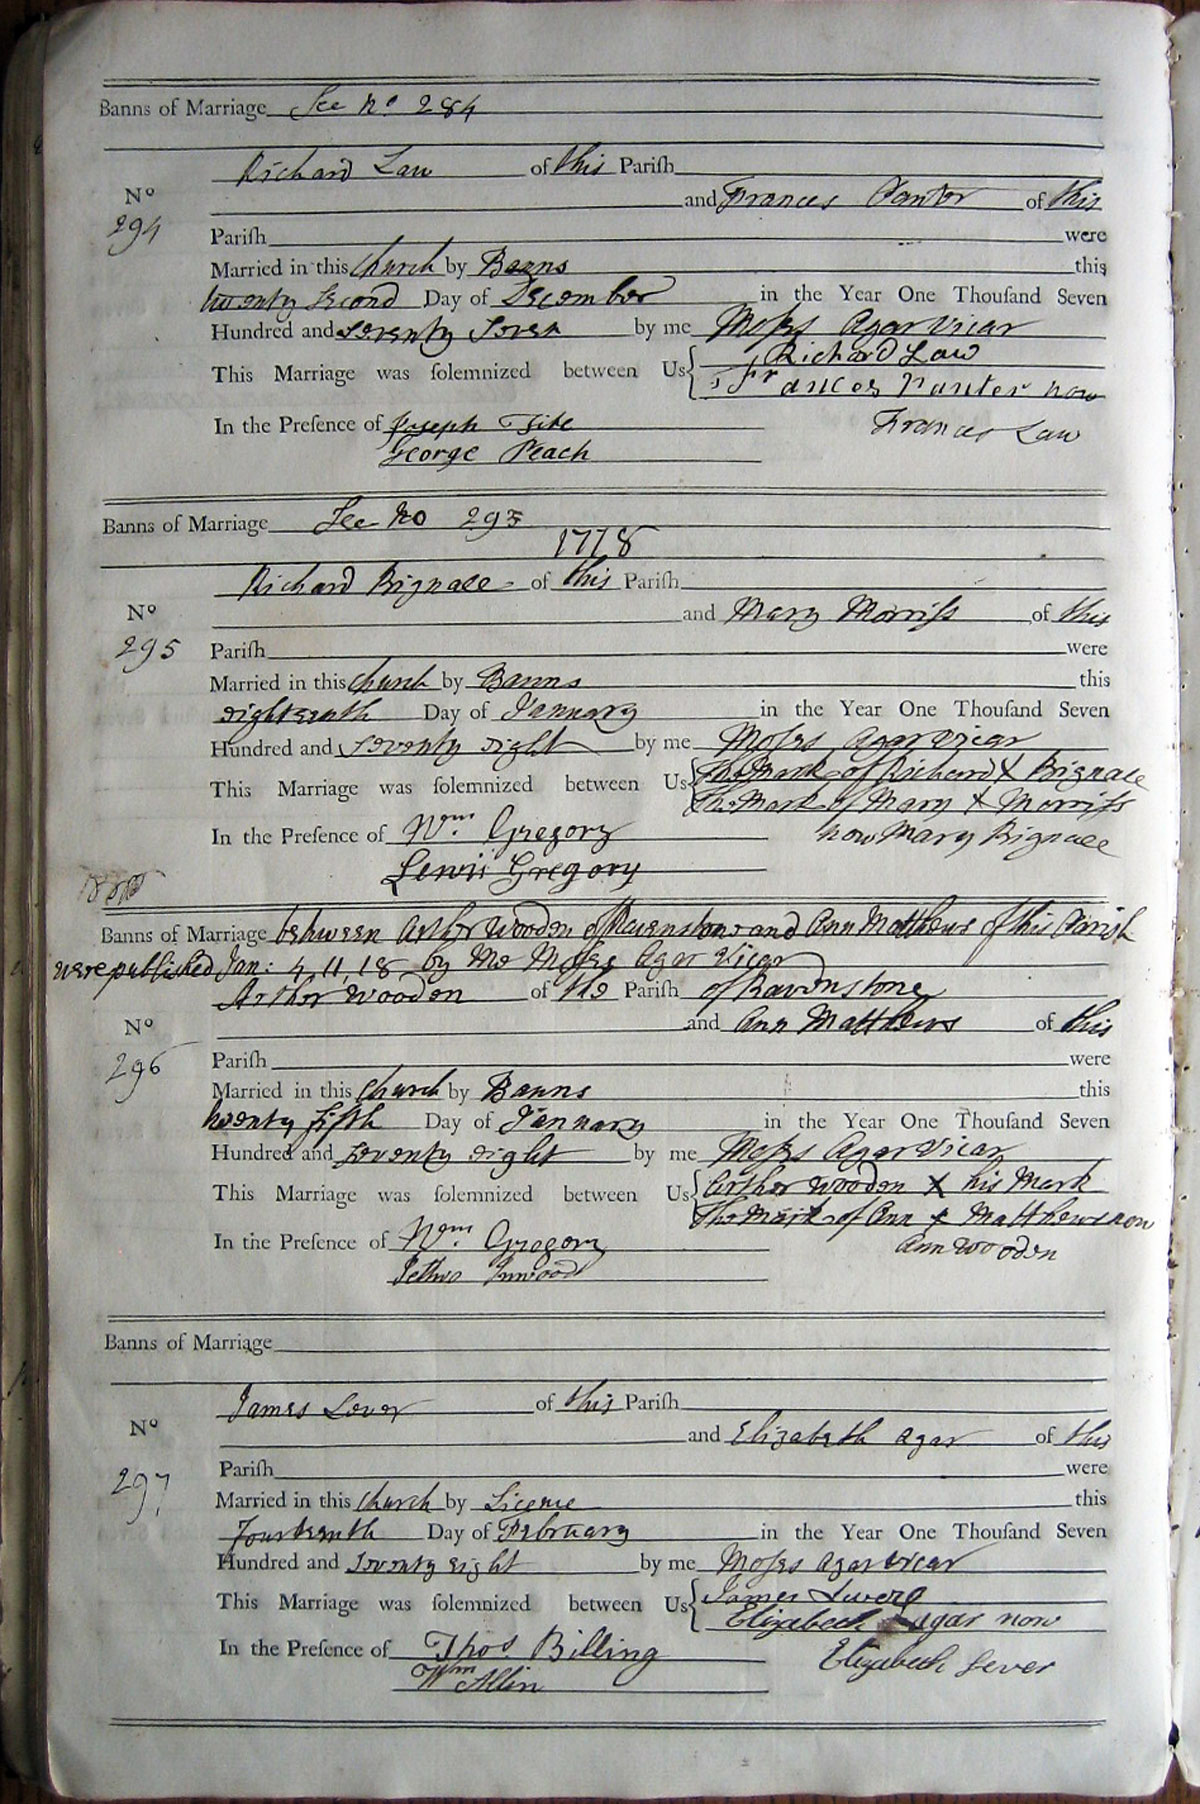 Banns of Marriage See No 284
Richard Law of this Pariſh
No and Frances Panter of this
294 Pariſh were
Married in this Church by Banns this
twenty Second Day of December in the Year One Thouſand Seven
Hundred and Seventy Seven by me Moſes Agar Vicar
This Marriage was ſolemnized between Us Richard Law
Frances Panter now
In the Preſence of Joseph Frances Law
George Peach
Banns of Marriage See No 293
1778
Richard Bignall of this Pariſh
No and Mary Morriſs of this
295 Pariſh were
Married in this Church by Banns this
eighteenth Day of January in the Year One Thouſand Seven
Hundred and Seventy eight by me Moſes Agar Vicar
This Marriage was ſolemnized between Us The Mark of Richard X Bignall
The Mark of Mary X Morriſs
In the Preſence of Wm Gregory now Mary Bignall
Lewis Gregory
Banns of Marriage between Arthr Wooden of Ravenstone and Ann Matthews of this Parish
were published Jan: 4, 11, 18 by Me Moſes Agar Vicar
Arthor Wooden of the Pariſh of Ravenstone
No and Ann Matthews of this
296 Pariſh were
Married in this Church by Banns this
twenty fifth Day of January in the Year One Thouſand Seven
Hundred and Seventy eight by me Moſes Agar Vicar
This Marriage was ſolemnized between Us Arther Wooden X his Mark
The Mark of Ann X Matthews now
In the Preſence of Wm Gregory Ann Wooden
Inwood
Banns of Marriage
James Lever of this Pariſh
No and Elizabeth Agar of this
297 Pariſh were
Married in this Church by License this
Fourteenth Day of February in the Year One Thouſand Seven
Hundred and Seventy eight by me Moſes Agar Vicar
This Marriage was ſolemnized between Us James
Elizabeth Agar now
In the Preſence of Thos Billing Elizabeth Lever
Wm Allin